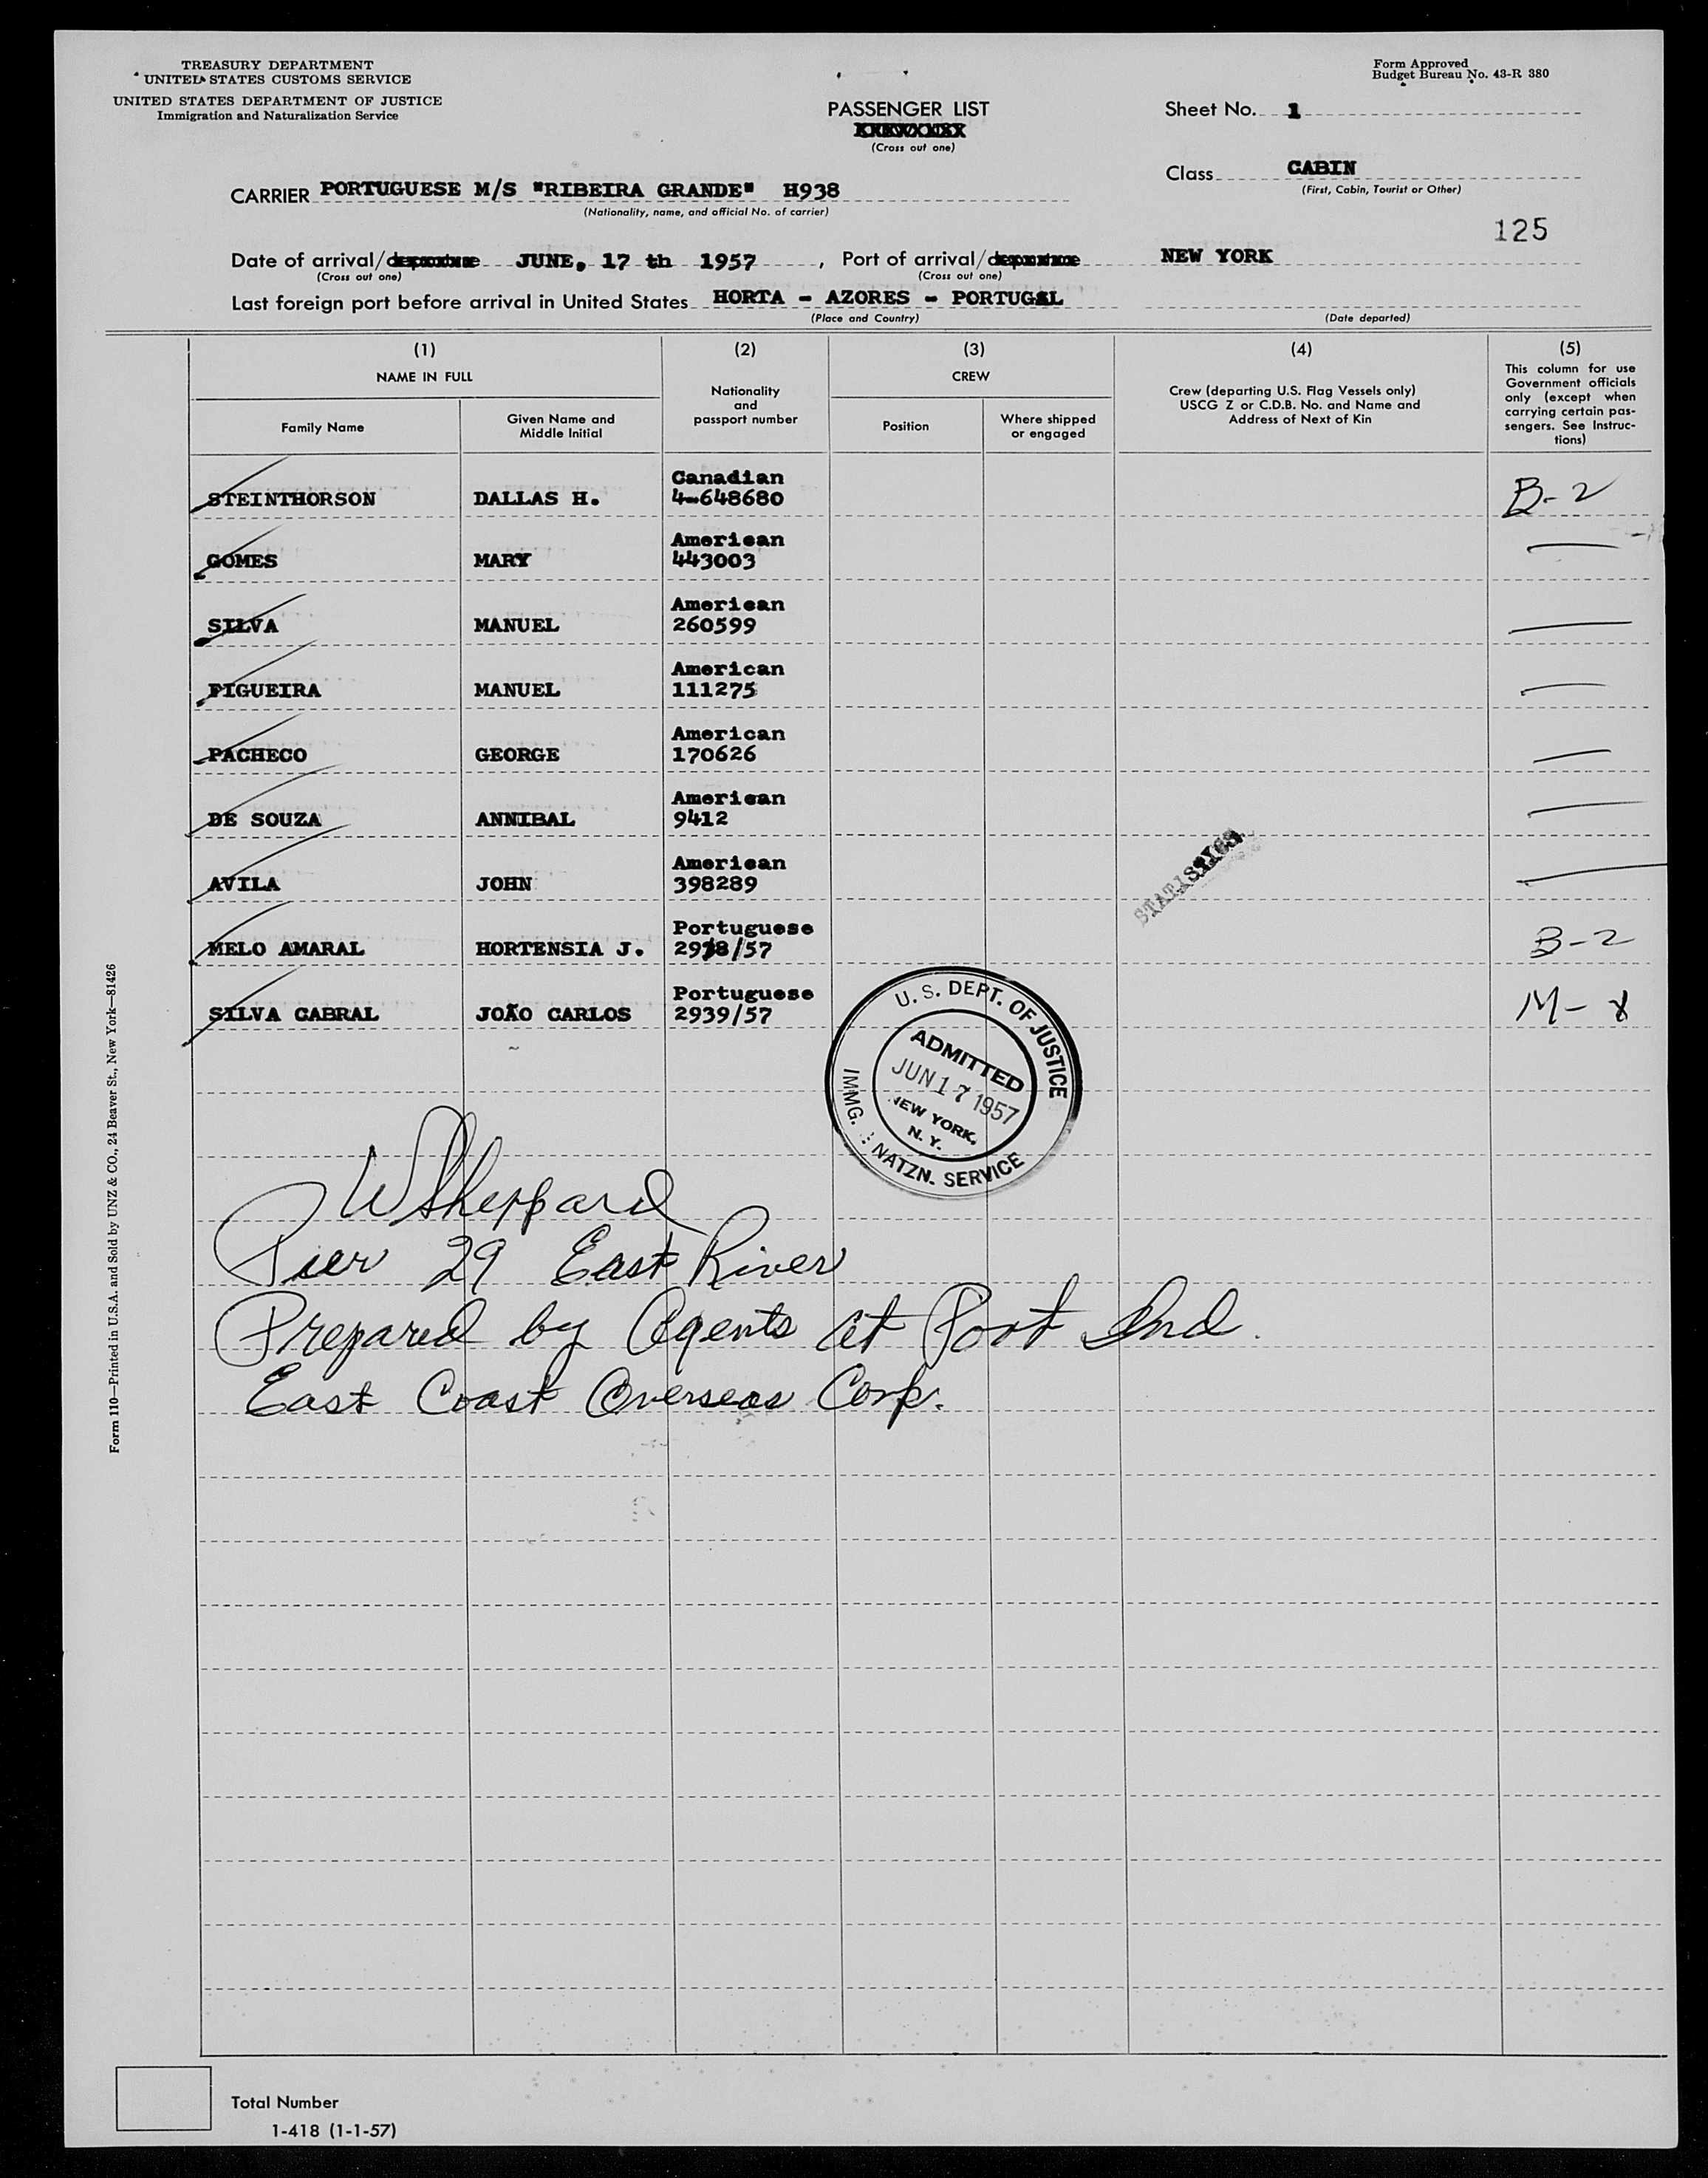 TREASURY DEPARTMENT
UNITED STATES CUSTOMS SERVICE
UNITED STATES DEPARTMENT OF JUSTICE
Immigration and Naturalization Service
Form Approved
Budget Bureau No. 43-R 380
PASSENGER LIST
(Cross out one)
Sheet No. 1
Class CABIN
(First, Cabin, Tourist or Other)
CARRIER PORTUGUESE M/S "RIBEIRA GRANDE" H938
(Nationality, name, and official No. of carrier)
125
Date of arrival/departure JUNE, 17 th 1957, Port of arrival/departure NEW YORK
(Cross out one) (Cross out one)
Last foreign port before arrival in United States HORTA - AZORES - PORTUGAL
(Place and Country) (Date departed)
(1) (2) (3) (4) (5)
NAME IN FULL
Family Name
Given Name and
Middle Initial
Nationality
and
passport number
CREW
Position
Where shipped
or engaged
Crew (departing U.S. Flag Vessels only)
USCG Z or C.D.B. No. and Name and
Address of Next of Kin
This column for use
Government officials
only (except when
carrying certain pas-
sengers. See Instruc-
tions)
Canadian
STEINTHORSON DALLAS H. 4-648680 B-2
American
GOMES MARY 443003 —
American
SILVA MANUEL 260599 —
American
FIGUEIRA MANUEL 111275 —
American
PACHECO GEORGE 170626 —
American
DE SOUZA ANNIBAL 9412 —
American
AVILA JOHN 398289 —
STATISTICS
Portuguese
MELO AMARAL HORTENSIA J. /57 B-2
Portuguese
SILVA CABRAL JOÃO CARLOS 2939/57 M-8
U. S. DEPT. OF JUSTICE
ADMITTED
JUN 17 1957
NEW YORK,
N. Y.
IMMG. & NATZN. SERVICE
W Sheppard
Pier 29 East River
Prepared by Agents at Port
East Coast Overseas Corp.
Form 110—Printed in U.S.A. and Sold by UNZ & CO., 24 Beaver St., New York—81426
Total Number
1-418 (1-1-57)